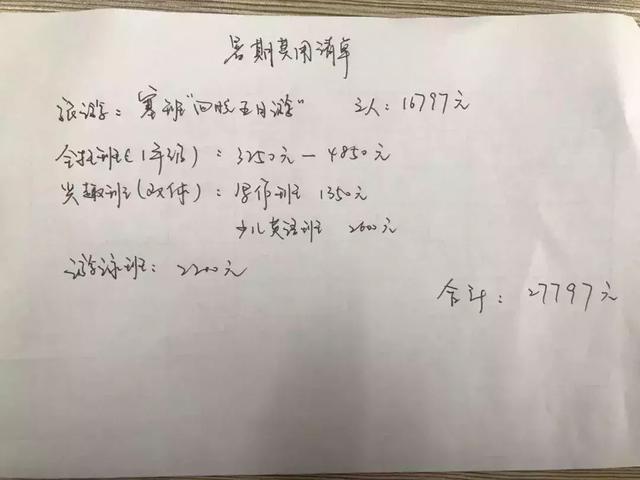 暑期费用清单
旅游：塞班"四晚五日游" 三人：16797元
全托班(1年级)：3250元－4850元
兴趣班(文体)：写作班 1350元
少儿英语班 2600元
游泳班：2200元
合计：27797元